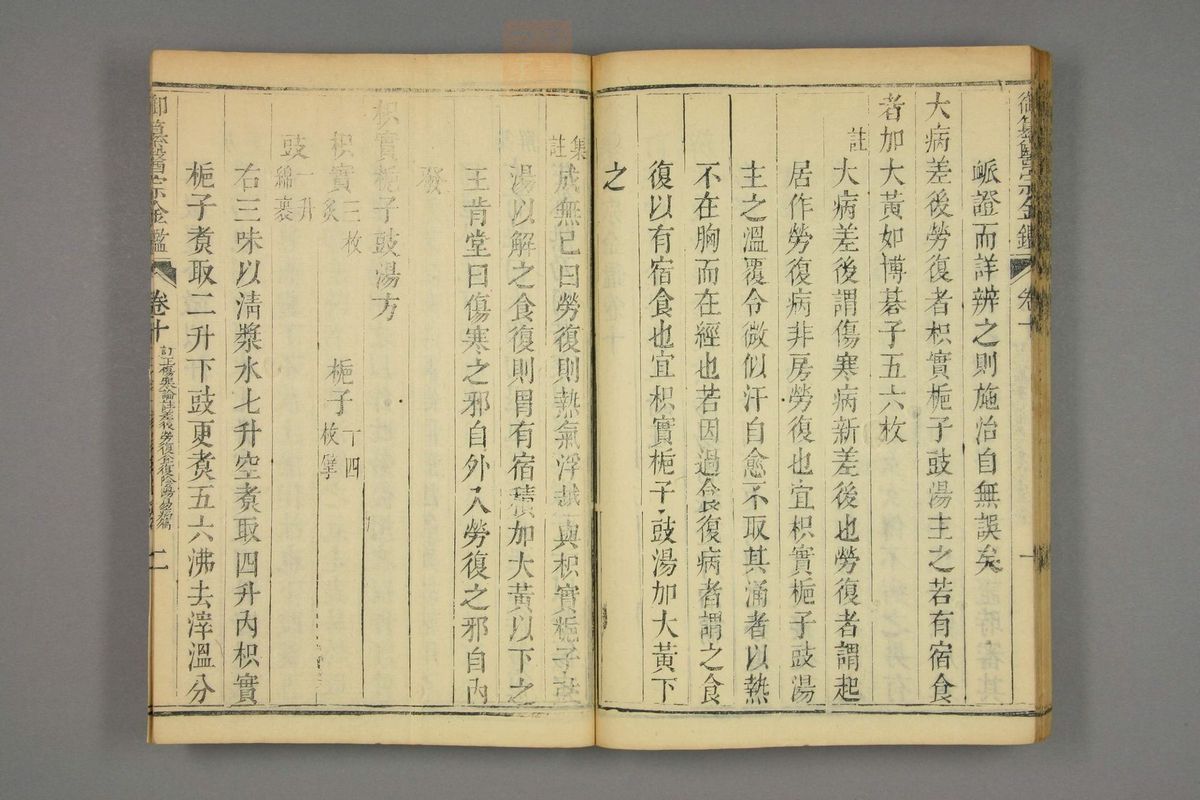 御纂醫宗金鑑
卷十
脈證而詳辨之則施治自無誤矣
大病差後勞復者枳實梔子豉湯主之若有宿食
者加大黃如博碁子五六枚
註大病差後謂傷寒病新差後也勞復者謂起
居作勞復病非房勞復也宜枳實梔子豉湯
主之溫覆令微似汗自愈不取其涌者以熱
不在胸而在經也若因過食復病者謂之食
復以有宿食也宜枳實梔子豉湯加大黃下
之
集註成無已曰勞復則熱氣浮越與枳實梔子豉
湯以解之食復則胃有宿積加大黃以下之
王肯堂曰傷寒之邪自外入勞復之邪自內
發
枳實梔子豉湯方
枳實三枚炙 梔子十四枚擘
豉一升綿裹
右三味以淸漿水七升空煑取四升內枳實
梔子煑取二升下豉更煑五六沸去滓溫分
御纂醫宗金鑑
卷十
訂正傷寒論註差後勞復食復陰陽易病篇
二